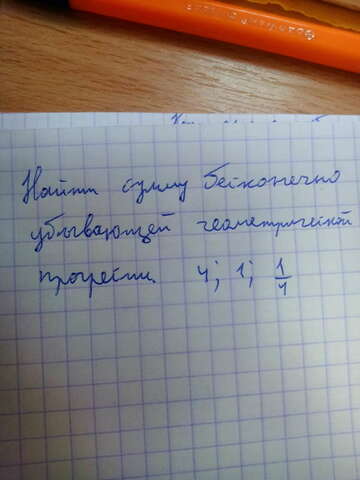 Найти сумму бесконечно
убывающей геометрической
прогрессии. 4; 1; 1/4